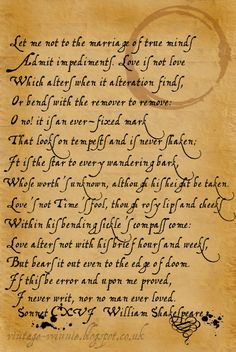 Let me not to the marriage of true minds
Admit impediments. Love is not love
Which alters when it alteration finds,
Or bends with the remover to remove:
O no! it is an ever-fixed mark
That looks on tempests and is never shaken;
It is the star to every wandering bark,
Whose worth's unknown, although his height be taken.
Love's not Time's fool, though rosy lips and cheeks
Within his bending sickle's compass come:
Love alters not with his brief hours and weeks,
But bears it out even to the edge of doom.
If this be error and upon me proved,
I never writ, nor no man ever loved.
Sonnet CXVI William Shakespeare
vintage-winnie.blogspot.co.uk